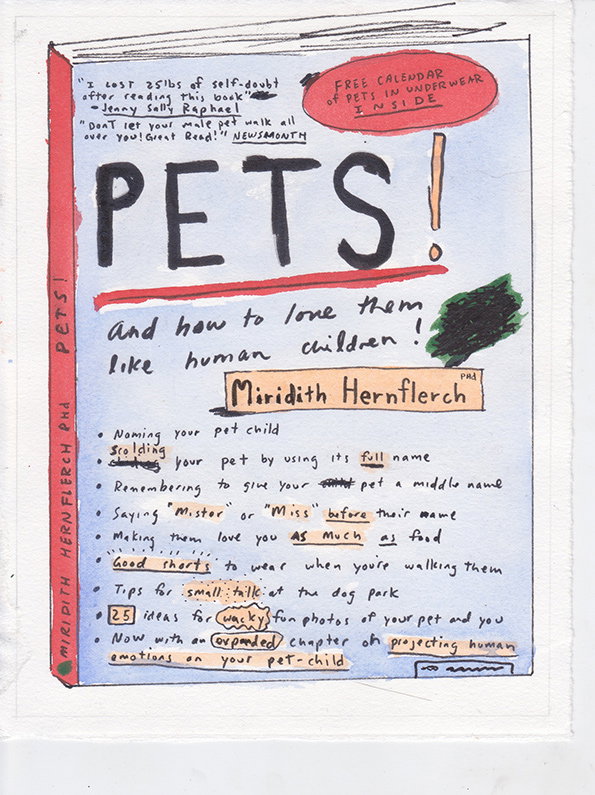 "I LOST 25lbs of self-doubt
after reading this book"
- Jenny Sally Raphael
"Don't let your male pet walk all
over you! Great Read!" NEWSMONTH
FREE CALENDAR
of PETS IN UNDERWEAR
INSIDE
PETS!
And how to love them
like human children!
Miridith Hernflerch PHd
• Naming your pet child
• Scolding your pet by using its full name
• Remembering to give your pet a middle name
• Saying "Mister" or "Miss" before their name
• Making them love you as much as food
• Good shorts to wear when you're walking them
• Tips for small talk at the dog park
• 25 ideas for wacky fun photos of your pet and you
• Now with an expanded chapter on projecting human
emotions on your pet-child
MIRIDITH HERNFLERCH PHd PETS!